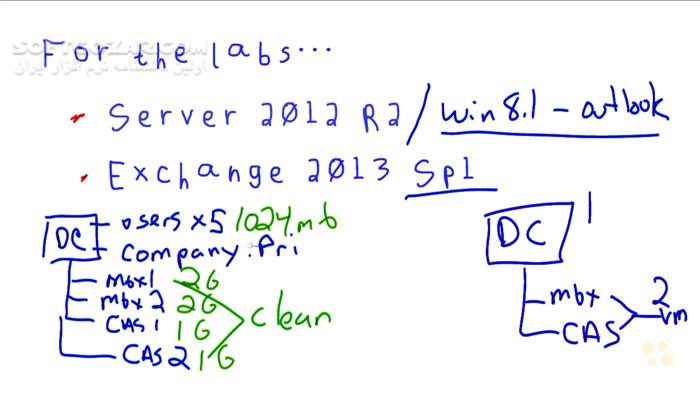 SOFTGOZAR.COM
For the labs...
اولین دانشنامه نرم افزار ایران
• Server 2012 R2 / Win 8.1 - outlook
• Exchange 2013 Sp1
DC users x5 1024mb
company.Pri
mbx1 2G
mbx2 2G
CAS1 1G
CAS2 1G
clean
DC 1
mbx
CAS
2 vm